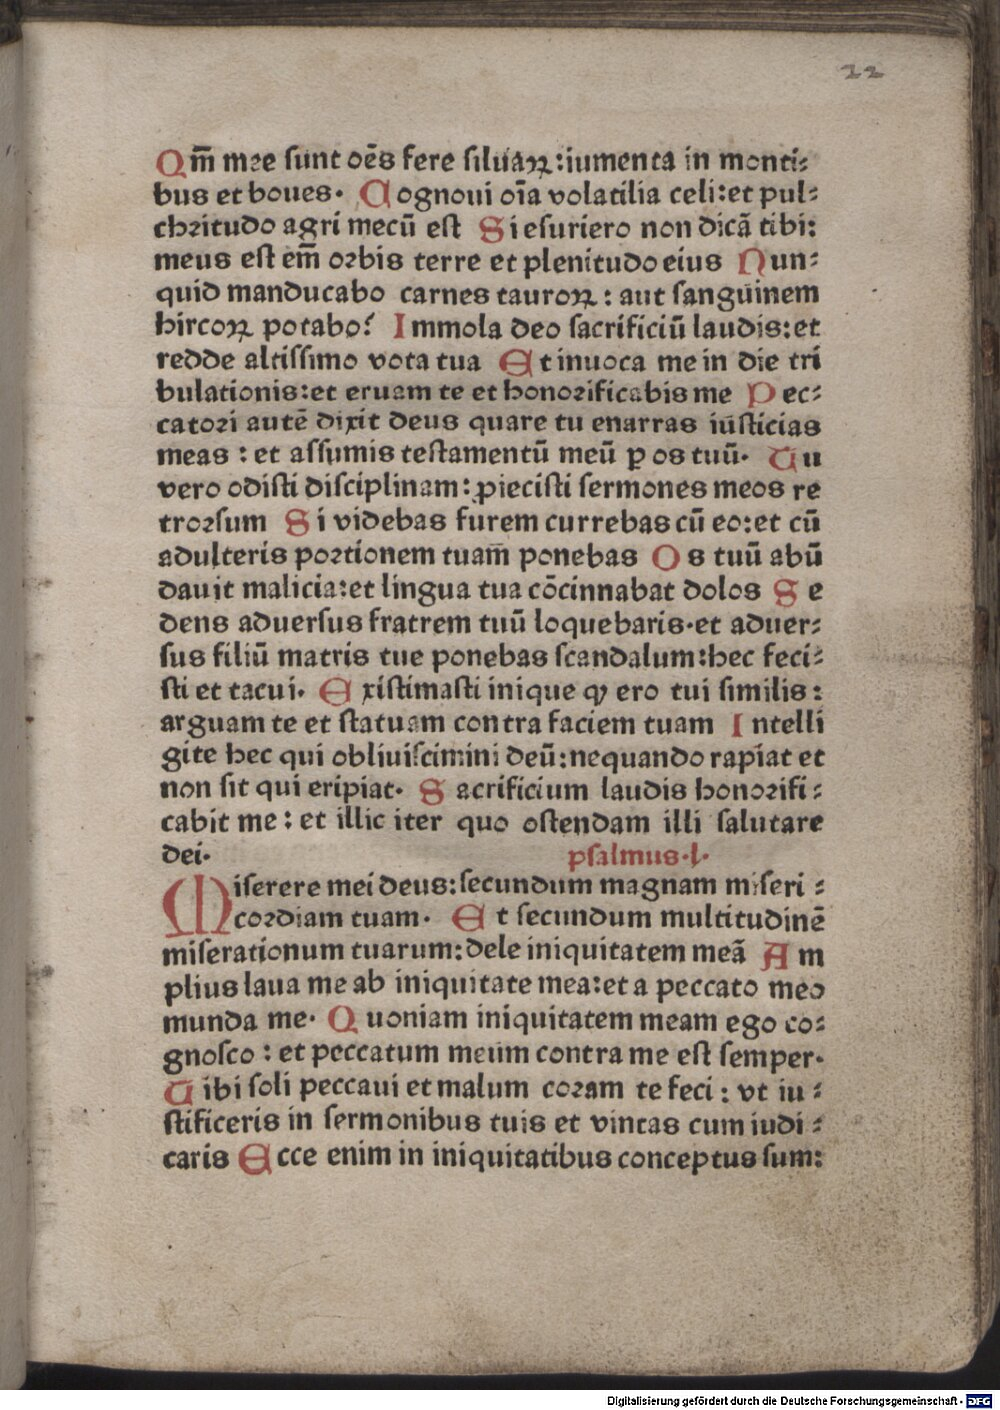 22
Qm̄ mee sunt oēs fere siluaꝝ:iumenta in monti-
bus et boues. Cognoui oīa volatilia celi:et pul-
chritudo agri mecū est Si esuriero non dicā tibi:
meus est em̄ orbis terre et plenitudo eius Nun-
quid manducabo carnes tauroꝝ: aut sanguinem
hircoꝝ potabo? Immola deo sacrificiū laudis:et
redde altissimo vota tua Et inuoca me in die tri
bulationis:et eruam te et honorificabis me Pec-
catori autē dixit deus quare tu enarras iusticias
meas : et assumis testamentū meū ꝑ os tuū. Tu
vero odisti disciplinam: ꝓiecisti sermones meos re
trorsum Si videbas furem currebas cū eo:et cū
adulteris portionem tuam̄ ponebas Os tuū abū
dauit malicia:et lingua tua cōcinnabat dolos Se
dens aduersus fratrem tuū loquebaris.et aduer-
sus filiū matris tue ponebas scandalum:hec feci-
sti et tacui. Existimasti inique ꝙ ero tui similis:
arguam te et statuam contra faciem tuam Intelli
gite hec qui obliuiscimini deū:nequando rapiat et
non sit qui eripiat. Sacrificium laudis honorifi-
cabit me : et illic iter quo ostendam illi salutare
dei. psalmus.l.
Miserere mei deus:secundum magnam miseri-
cordiam tuam. Et secundum multitudinē
miserationum tuarum:dele iniquitatem meā Am
plius laua me ab iniquitate mea:et a peccato meo
munda me. Quoniam iniquitatem meam ego co-
gnosco : et peccatum meum contra me est semper.
Tibi soli peccaui et malum coram te feci : vt iu-
stificeris in sermonibus tuis et vincas cum iudi-
caris Ecce enim in iniquitatibus conceptus sum:
Digitalisierung gefördert durch die Deutsche Forschungsgemeinschaft - DFG